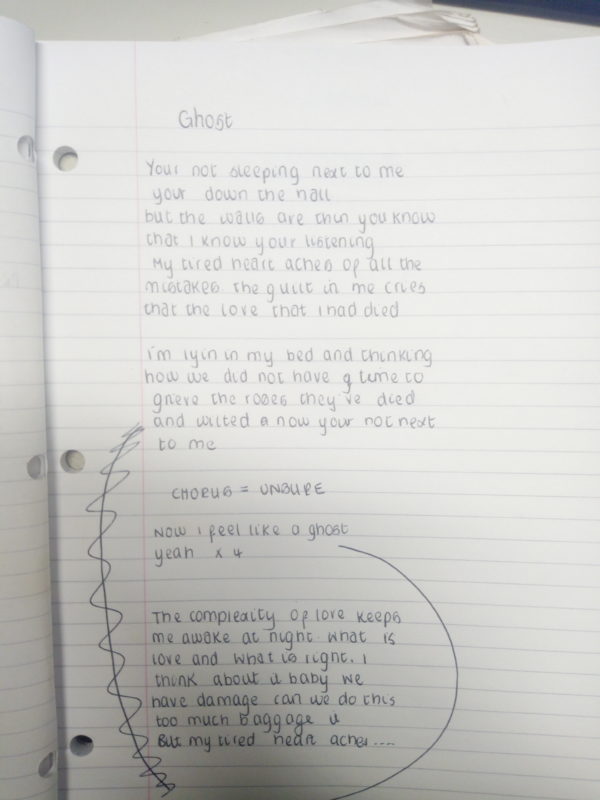 Ghost
Your not sleeping next to me
your down the hall
but the walls are thin you know
that I know your listening
My tired heart aches of all the
mistakes the guilt in me cries
that the love that i had died
i'm lyin in my bed and thinking
how we did not have a time to
grieve the roses they've died
and wilted n now your not next
to me
CHORUS = UNSURE
NOW i feel like a ghost
yeah x 4
The complexity of love keeps
me awake at night what is
love and what is right. I
think about it baby we
have damage can we do this
too much baggage
But my tired heart aches....